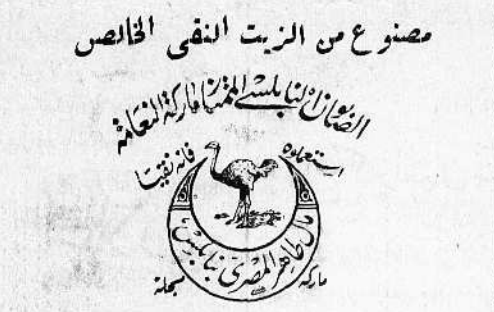 مصنوع من الزيت النقي الخالص
الصابون النابلسي الممتاز ماركة النعامة
استعملوه فانه نقيا
طاهر المصري نابلس
ماركه مسجلة